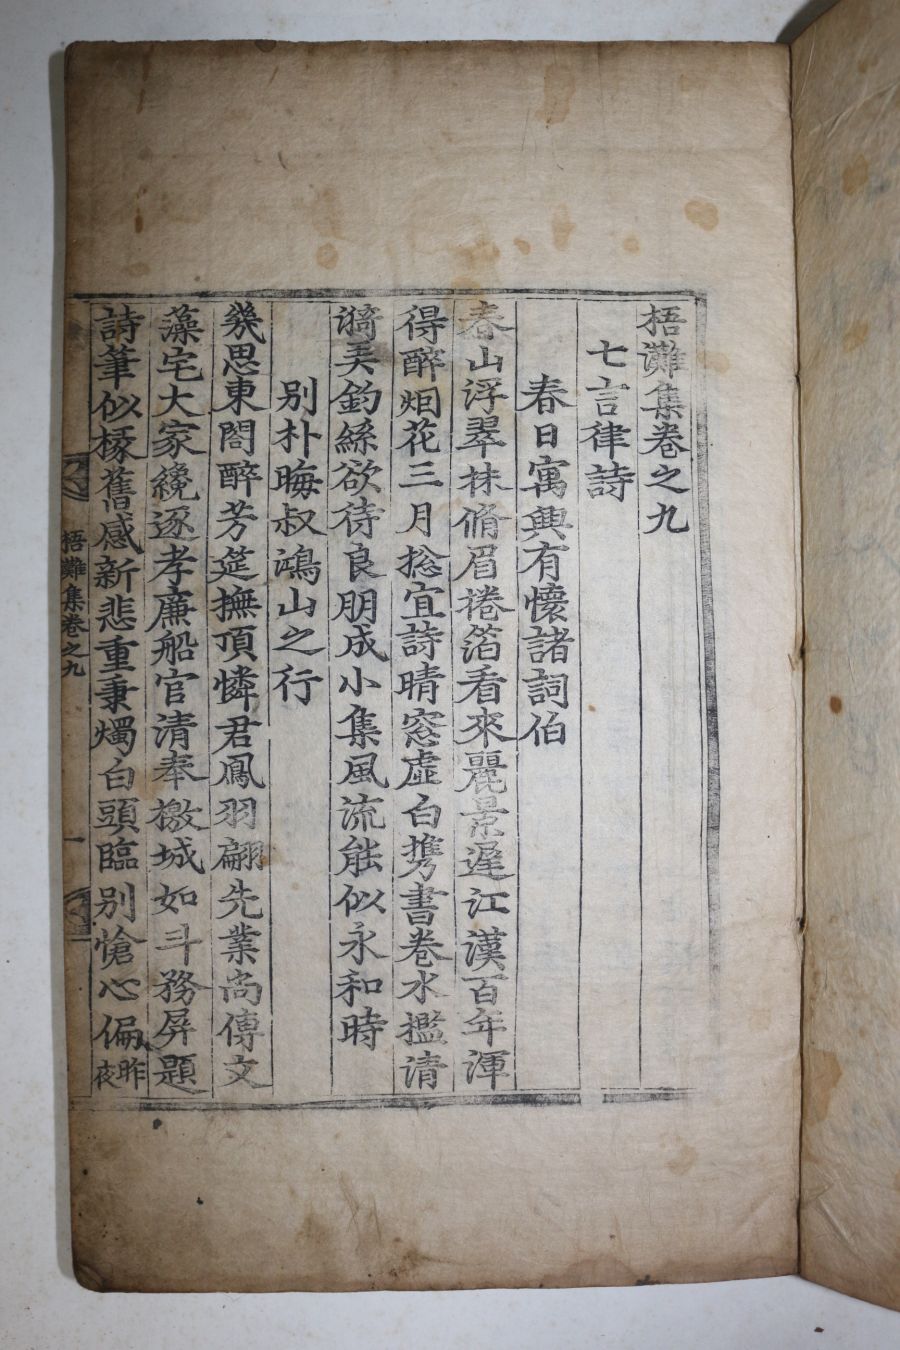 梧灘集卷之九
七言律詩
春日寓興有懷諸詞伯
春山浮翠抹脩眉捲箔看來麗景遲江漢百年渾
得醉烟花三月捴宜詩晴窓虛白携書卷水檻清
漪美釣絲欲待良朋成小集風流能似永和時
別朴晦叔鴻山之行
幾思東閤醉芳筵撫頂憐君鳳羽翩先業尚傳文
藻宅大家纔逐孝廉船官清奉檄城如斗務屏題
詩筆似椽舊感新悲重秉燭白頭臨別愴心偏昨夜
梧灘集卷之九
一